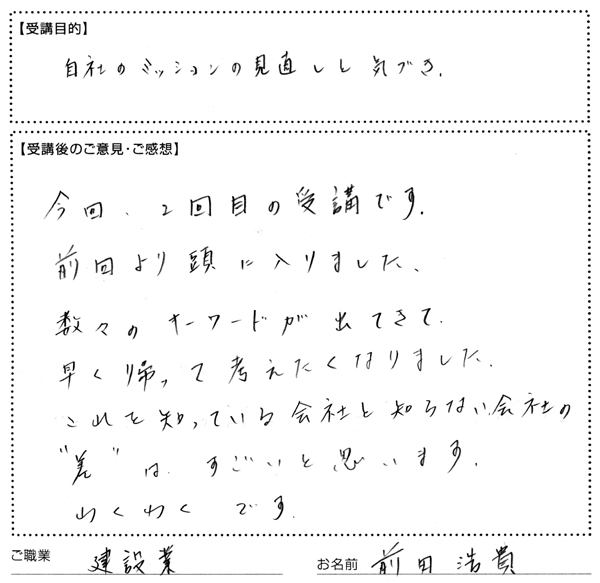 【受講目的】
自社のミッションの見直しと気づき.
【受講後のご意見・ご感想】
今回、2回目の受講です.
前回より頭に入りました.
数々のキーワードが出てきて.
早く帰って考えたくなりました.
これを知っている会社と知らない会社の
"差"は、すごいと思います.
わくわくです.
ご職業 建設業 お名前 前田浩貴